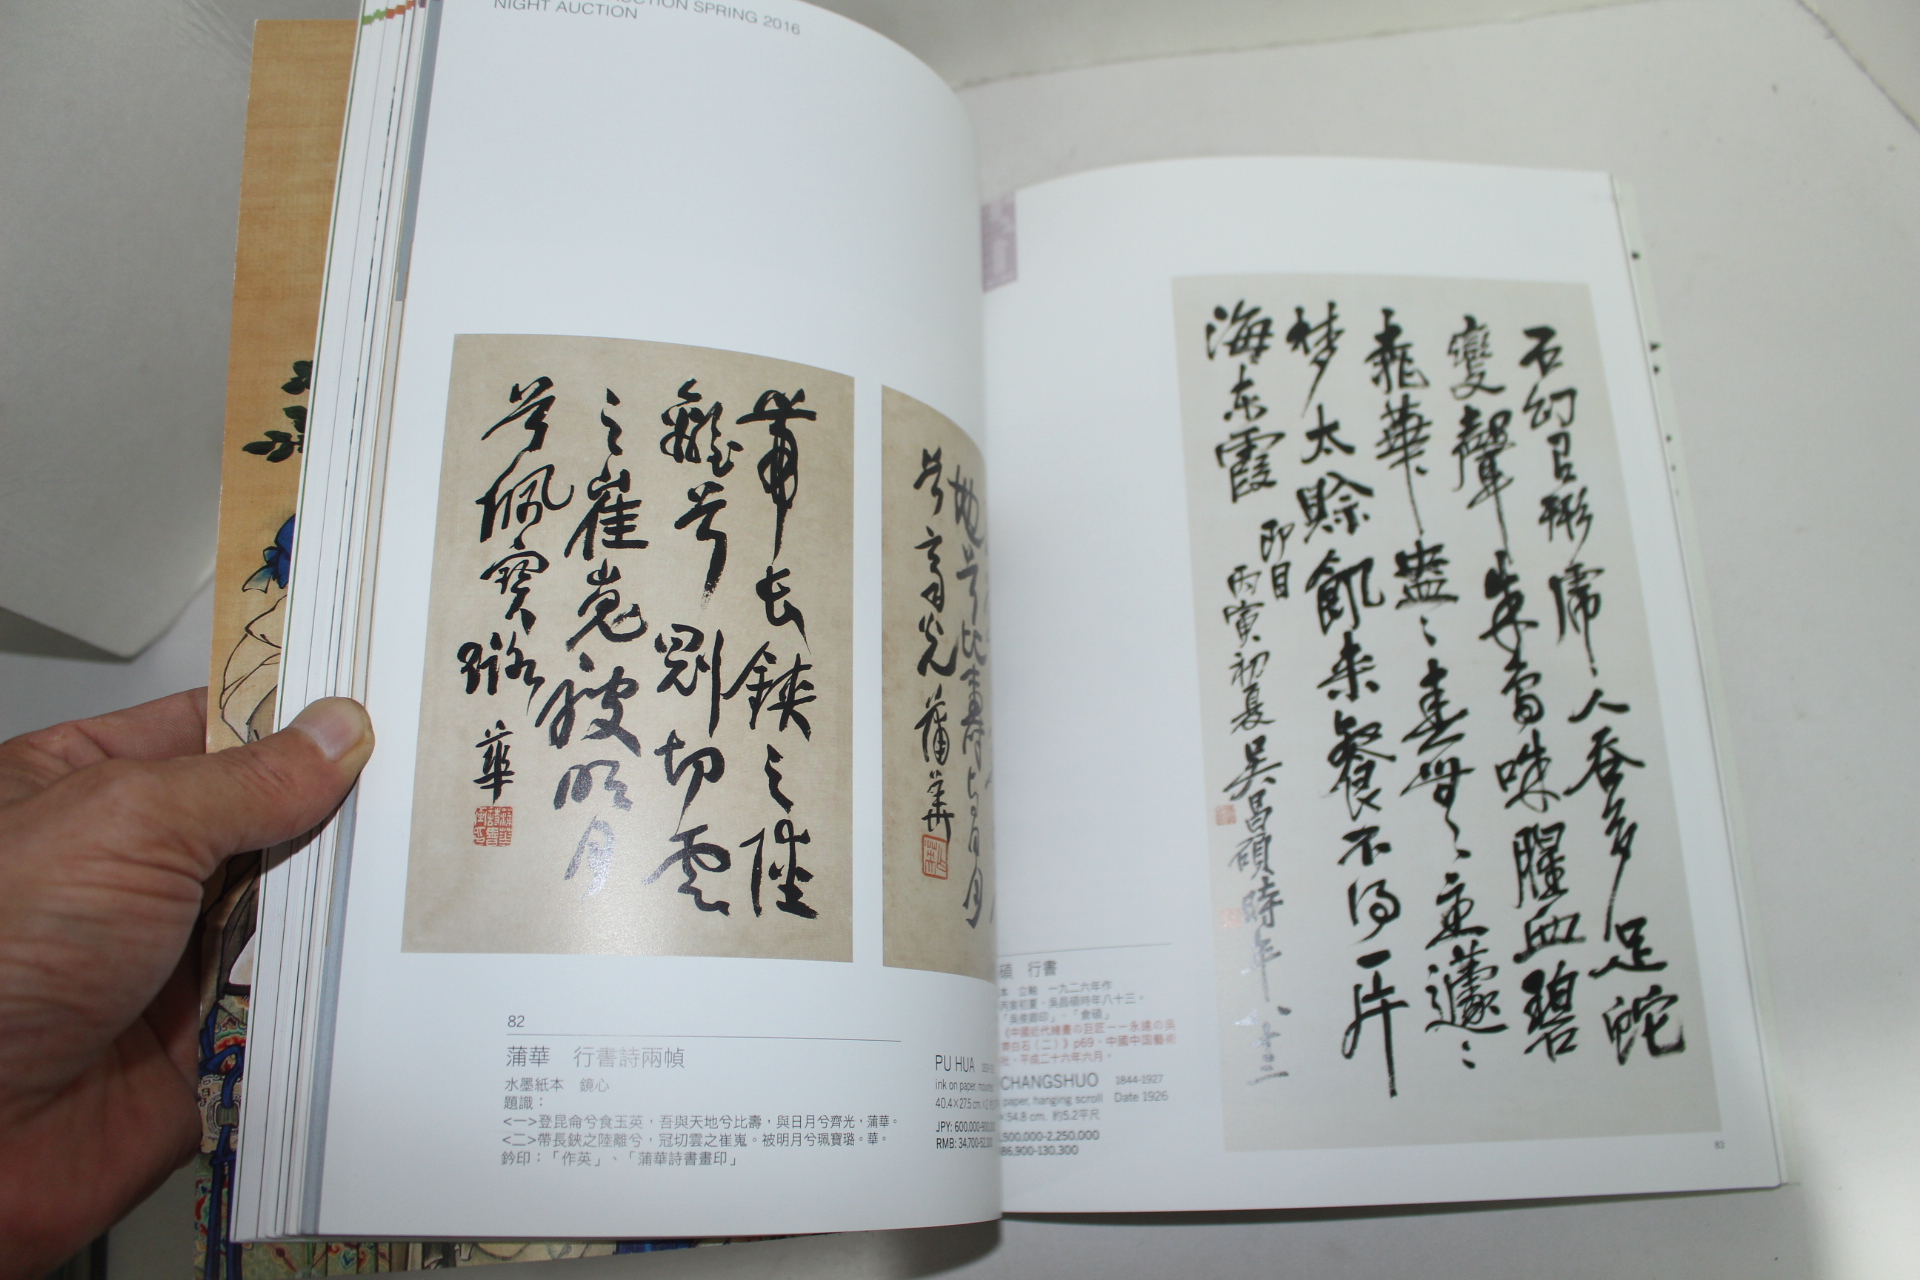 AUCTION SPRING 2016
NIGHT AUCTION
帶長鋏之陸
離兮冠切雲
之崔嵬被明月
兮珮寶璐
華
地兮比壽與日月
兮齊光 蒲華
82
蒲華 行書詩兩幀
水墨紙本 鏡心
題識：
<一>登昆侖兮食玉英，吾與天地兮比壽，與日月兮齊光，蒲華。
<二>帶長鋏之陸離兮，冠切雲之崔嵬。被明月兮珮寶璐。華。
鈐印：「作英」、「蒲華詩書畫印」
PU HUA
ink on paper, mounted
40.4×27.5 cm.
JPY: 600,000-900,000
RMB: 34,700-52,
石幻吕形席人吞多足蛇
變聲朱鳥咮腥血碧
華蠢春毋重蘧
梦太賒飢来餐不得一片
海东霞 即目
丙寅初夏吴昌碩時年八十三
碩 行書
本 立軸 一九二六年作
丙寅初夏，吳昌碩時年八十三。
「吳俊卿印」、「倉碩」
《中國近代繪畫の巨匠——永遠の吳
白石（二）》p69，中國中国藝術
社，平成二十六年六月。
CHANGSHUO 1844-1927
paper, hanging scroll Date 1926
×54.8 cm. 約5.2平尺
,500,000-2,250,000
86,900-130,300
83